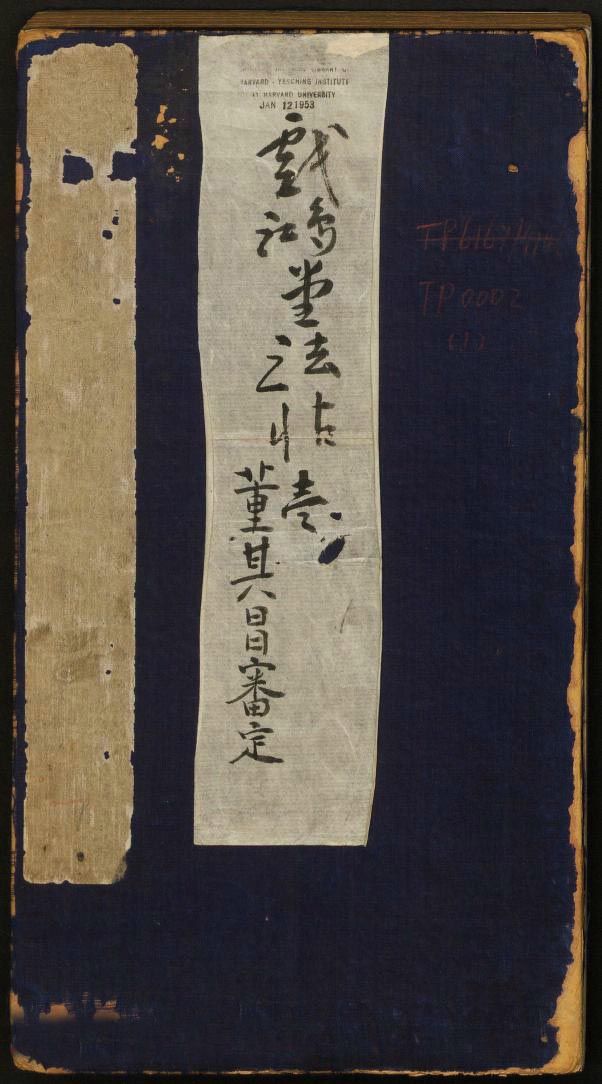 HARVARD - YENCHING INSTITUTE
AT HARVARD UNIVERSITY
JAN 12 1953
戲鴻堂法帖壹
董其昌審定
TP 0002
(1)